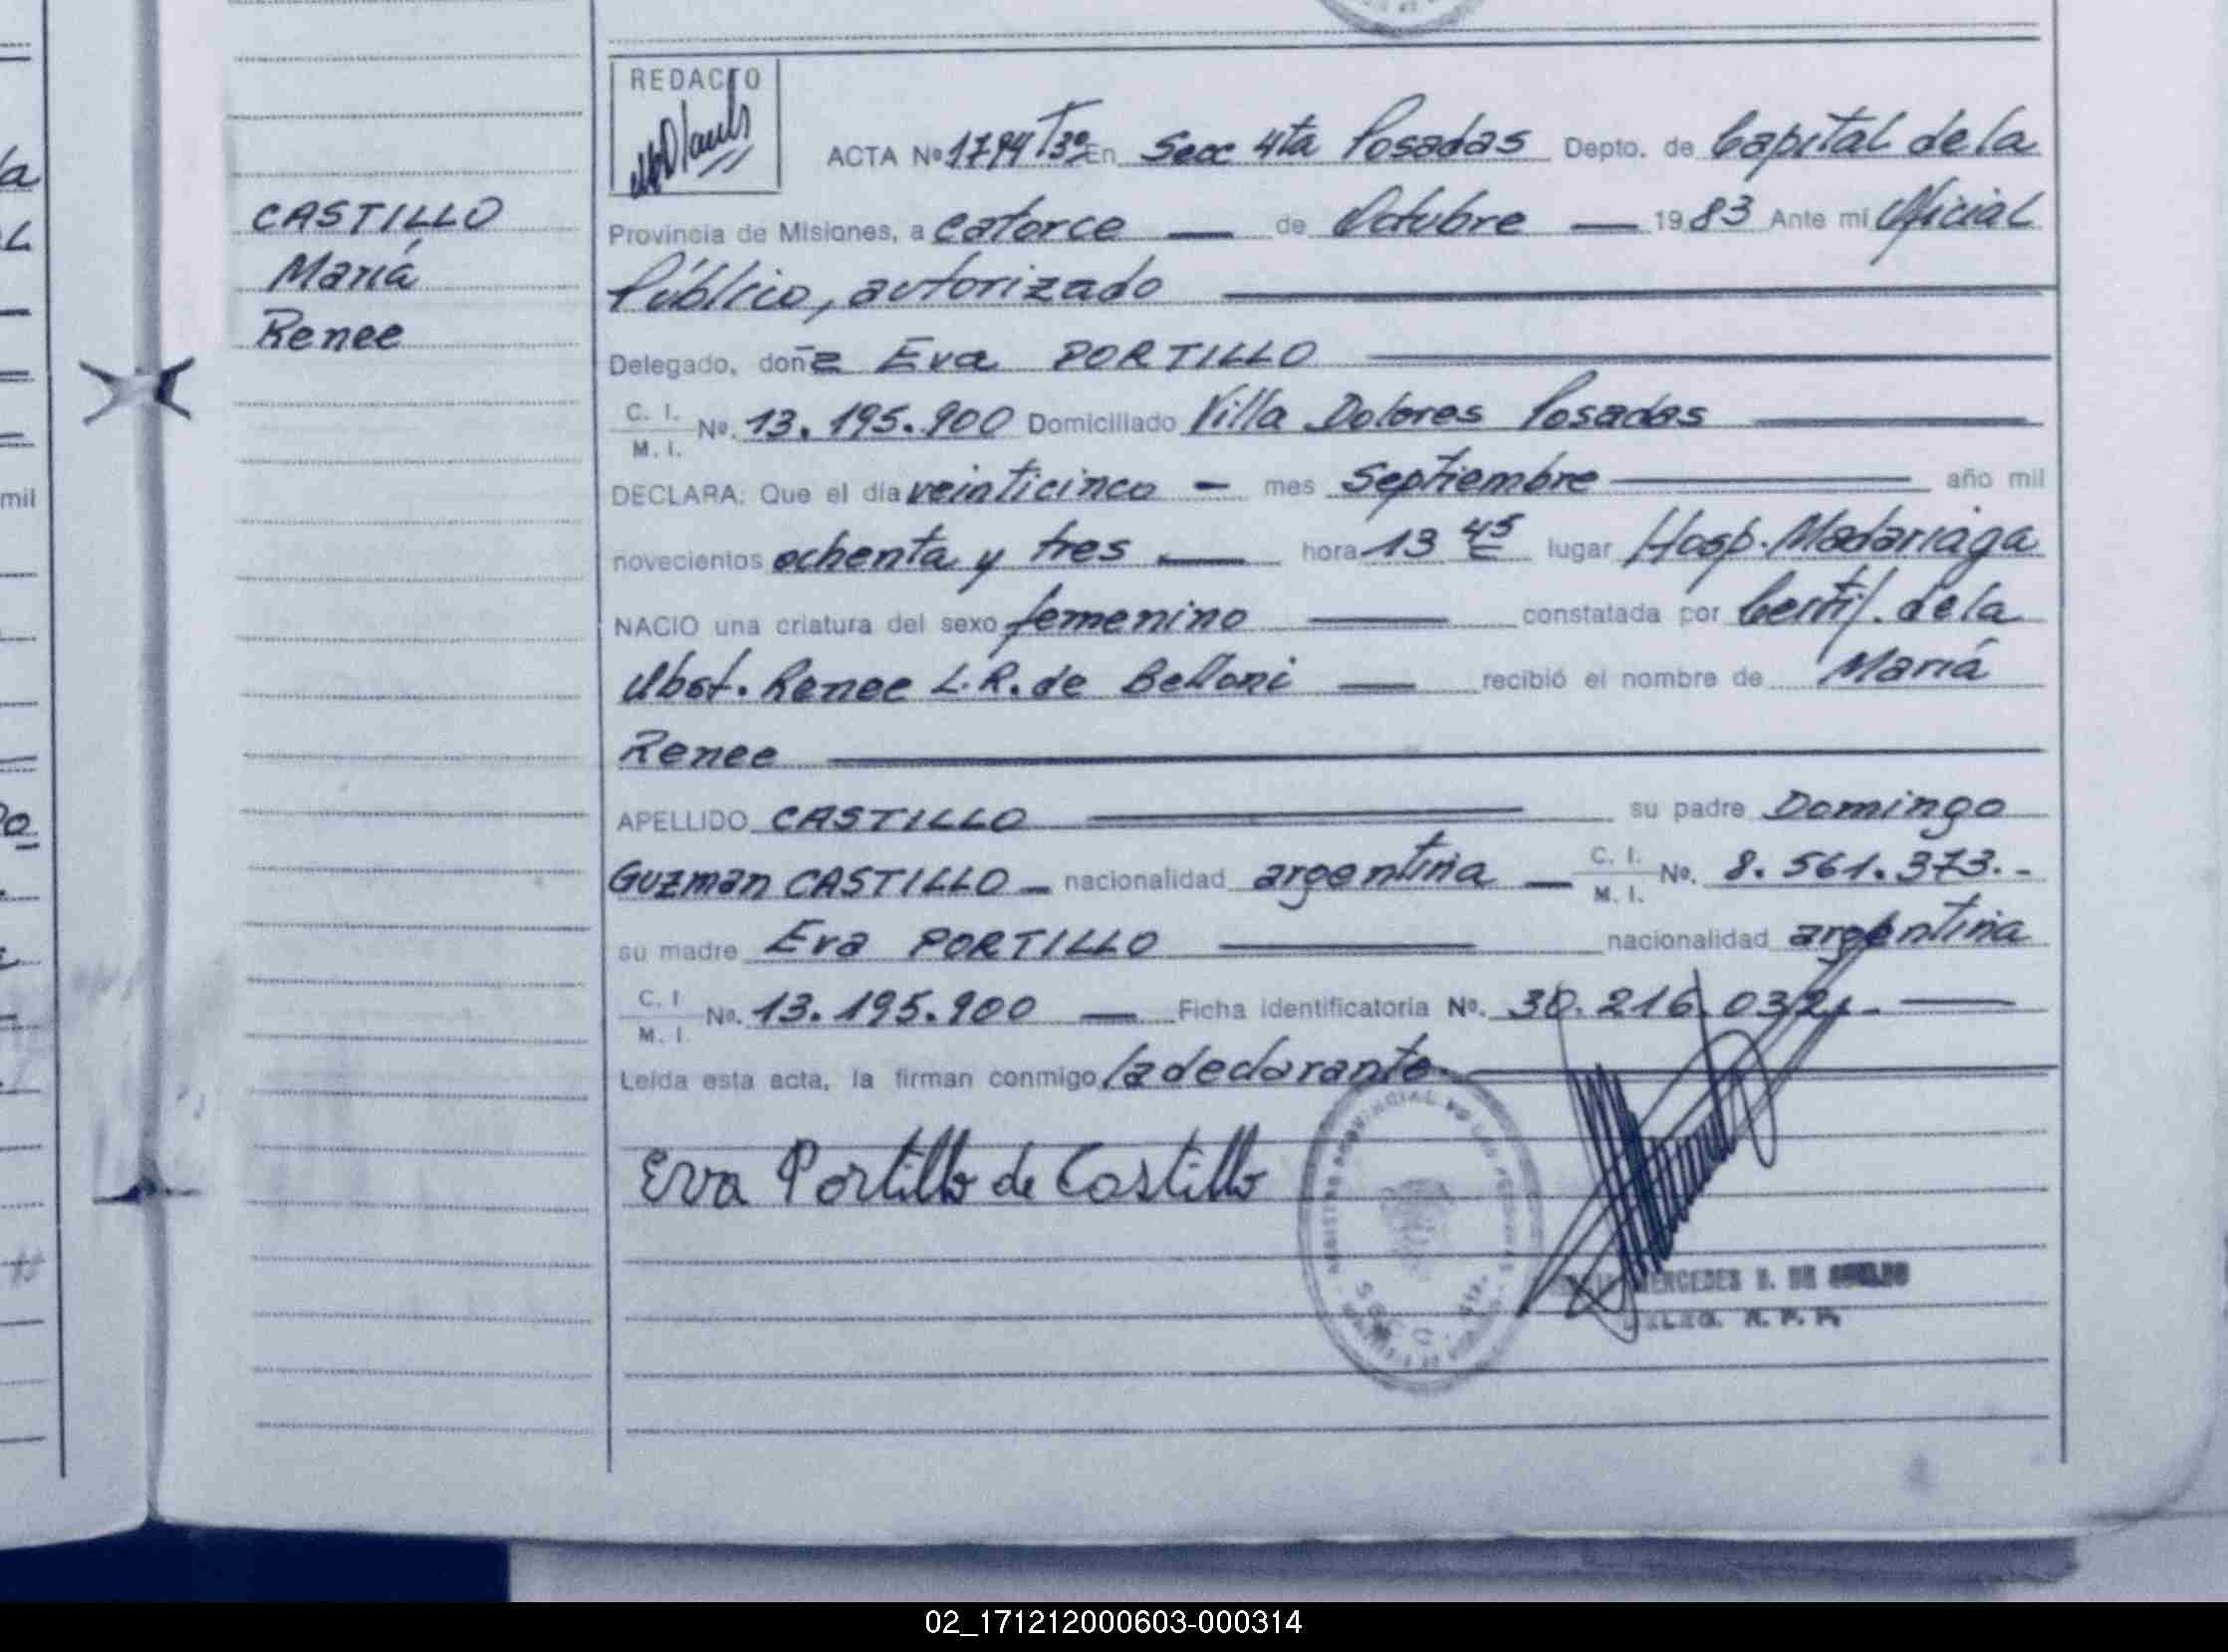 REDACTO
ACTA Nº 1794 Tº3º En Secc 4ta Posadas Depto. de Capital de la
CASTILLO
María
Renee
Provincia de Misiones, a catorce — de Octubre — 1983 Ante mí Oficial
Público, autorizado
Delegado, doña Eva PORTILLO
C. I.
M. I. Nº. 13.195.900 Domiciliado Villa Dolores Posadas
DECLARA: Que el día veinticinco — mes Septiembre año mil
novecientos ochenta y tres — hora 13 45 lugar Hosp. Madariaga
NACIO una criatura del sexo femenino — constatada por Certif. de la
Obst. Renee L.R. de Belloni — recibió el nombre de María
Renee
APELLIDO CASTILLO su padre Domingo
Guzman CASTILLO — nacionalidad argentina — C. I.
M. I. Nº. 8.561.373.-
su madre Eva PORTILLO — nacionalidad argentina
C. I
M. I Nº. 13.195.900 — Ficha identificatoria Nº. 30.216.032.-
Leída esta acta, la firman conmigo la declarante.
Eva Portillo de Castillo
MERCEDES
mil
02_171212000603-000314